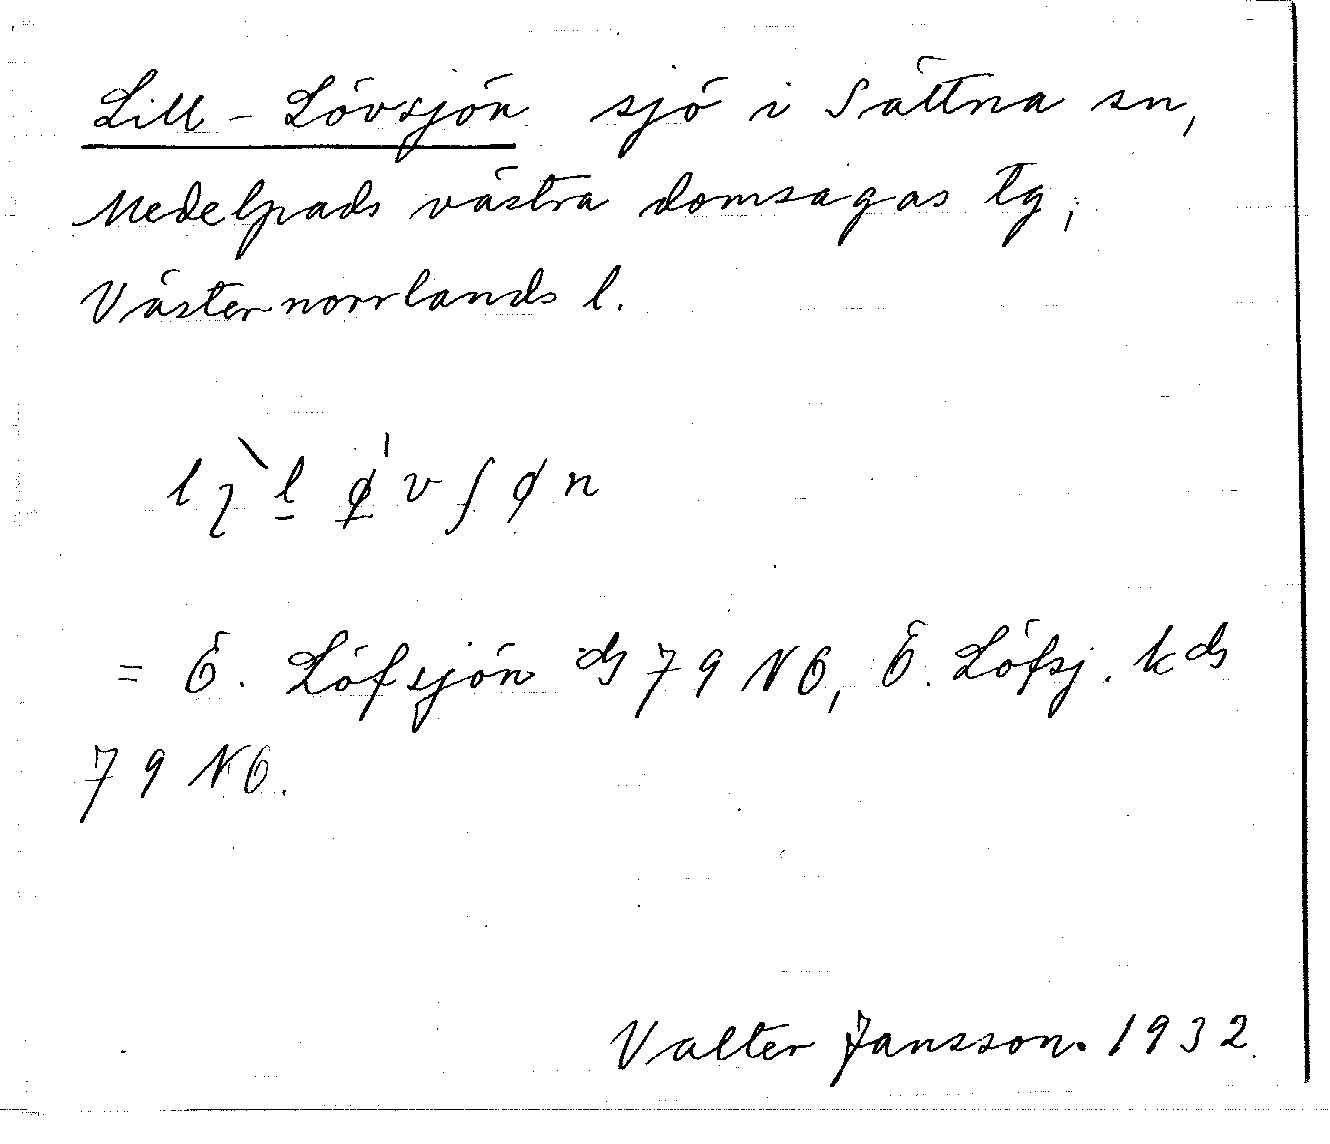 Lill-Lövsjön sjö i Sättna sn,
Medelpads västra domsagas tg,
Västernorrlands l.
= Ö. Löfsjön ds 79 NO, Ö. Löfsj. kds
79 NO.
Valter Jansson. 1932